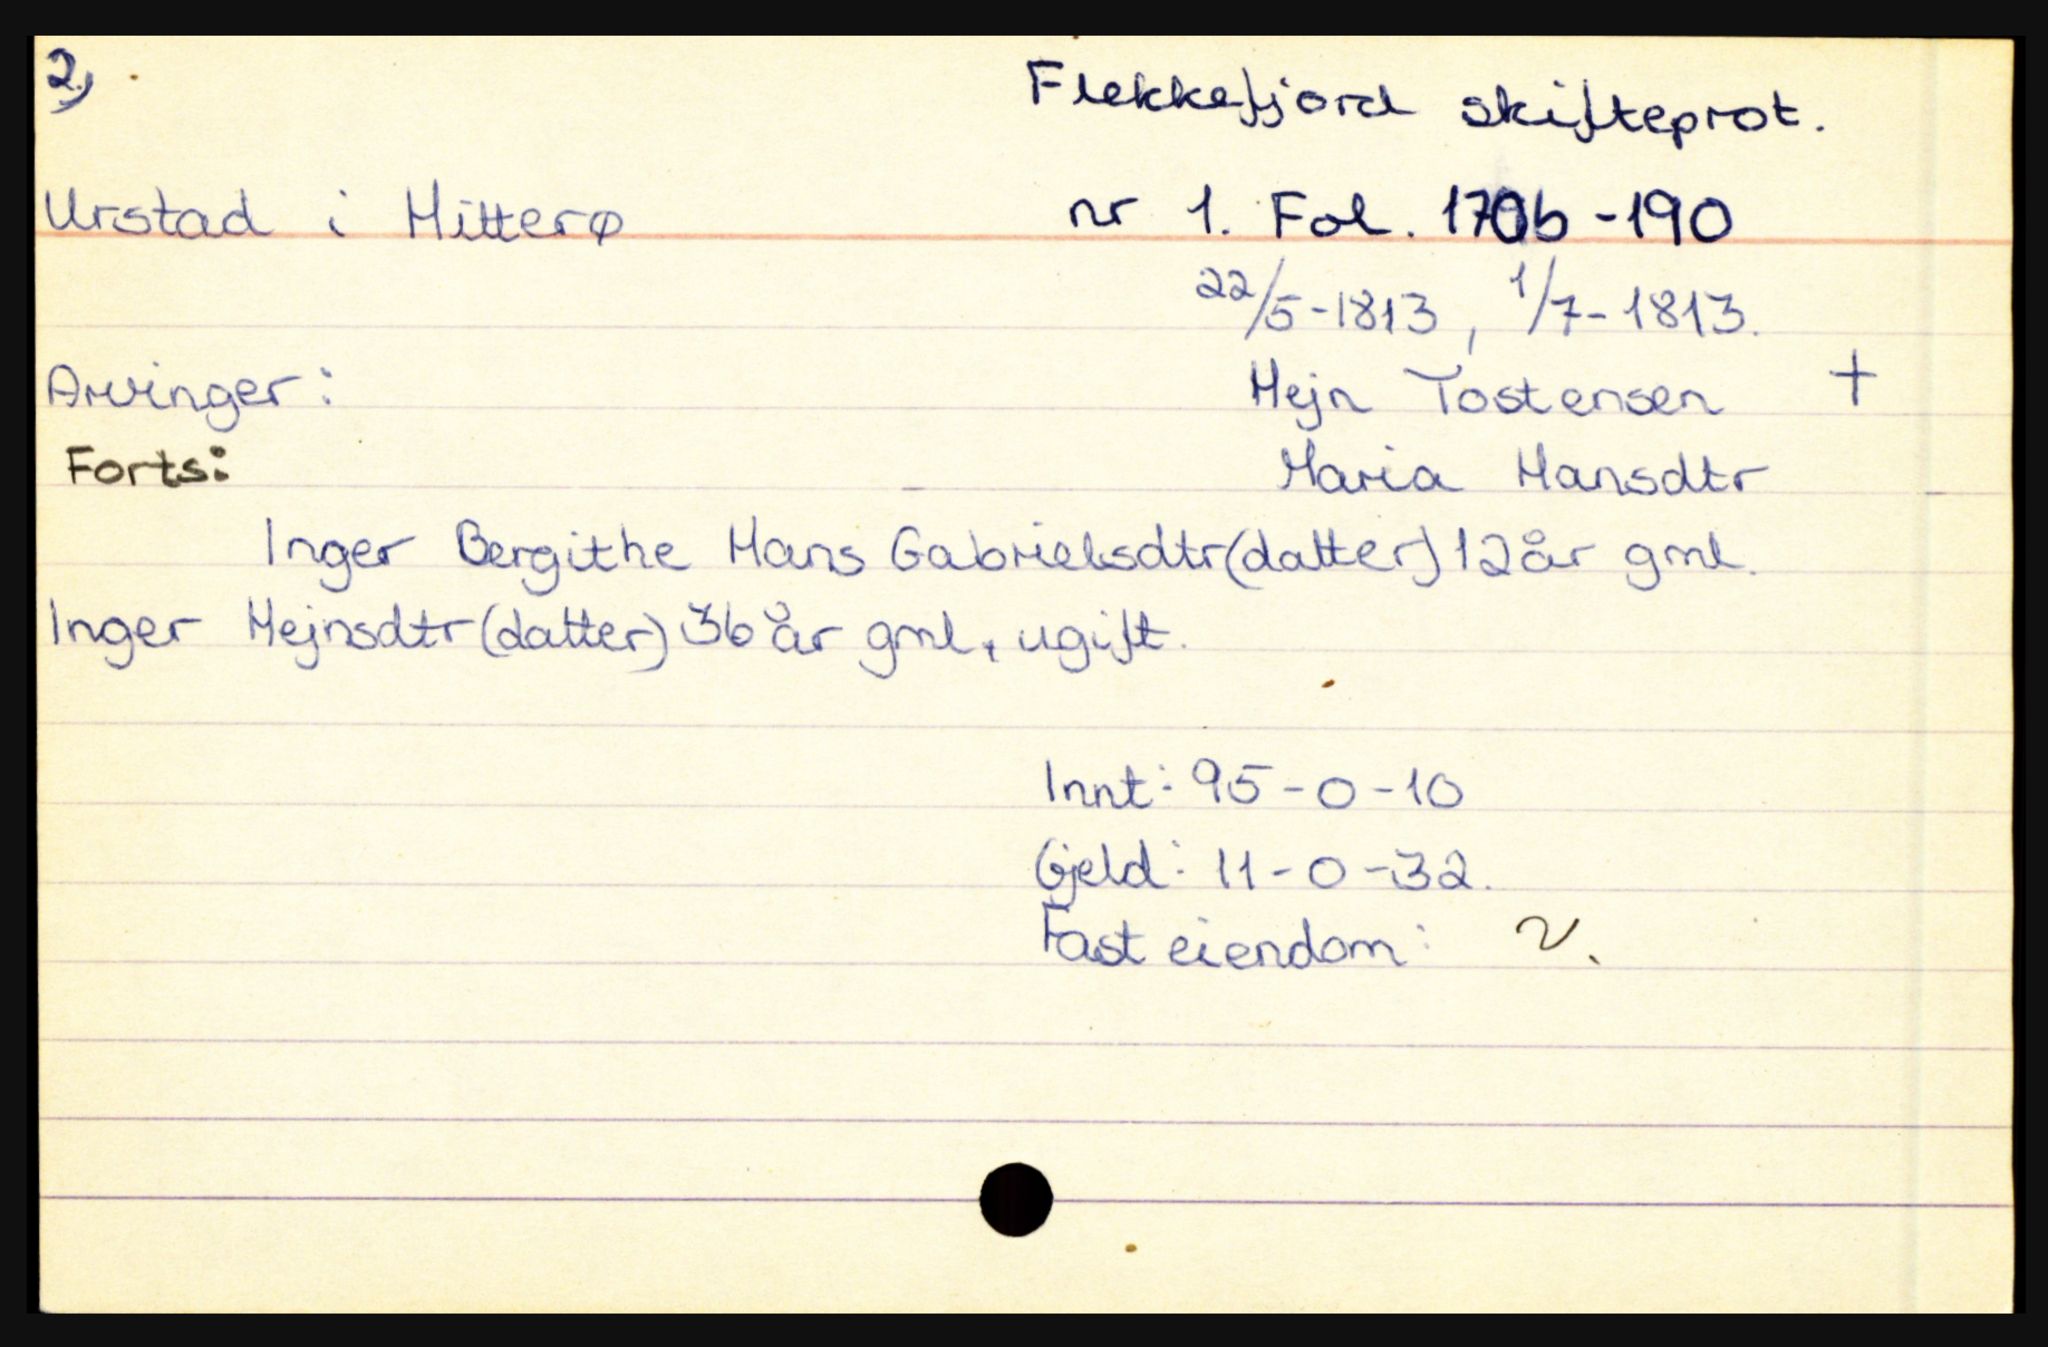 2,
Flekkefjord skifteprot.
Urstad i Hitterø
nr 1. Fol. 170b-190
22/5-1813, 1/7-1813.
Arvinger:
Hejn Tostensen +
Forts:
Maria Hansdtr
Inger Bergithe Hans Gabrielsdtr(datter) 12 år gml.
Inger Hejnsdtr(datter) 36 år gml, ugift.
Innt: 95-0-10
Gjeld: 11-0-32.
Fast eiendom: